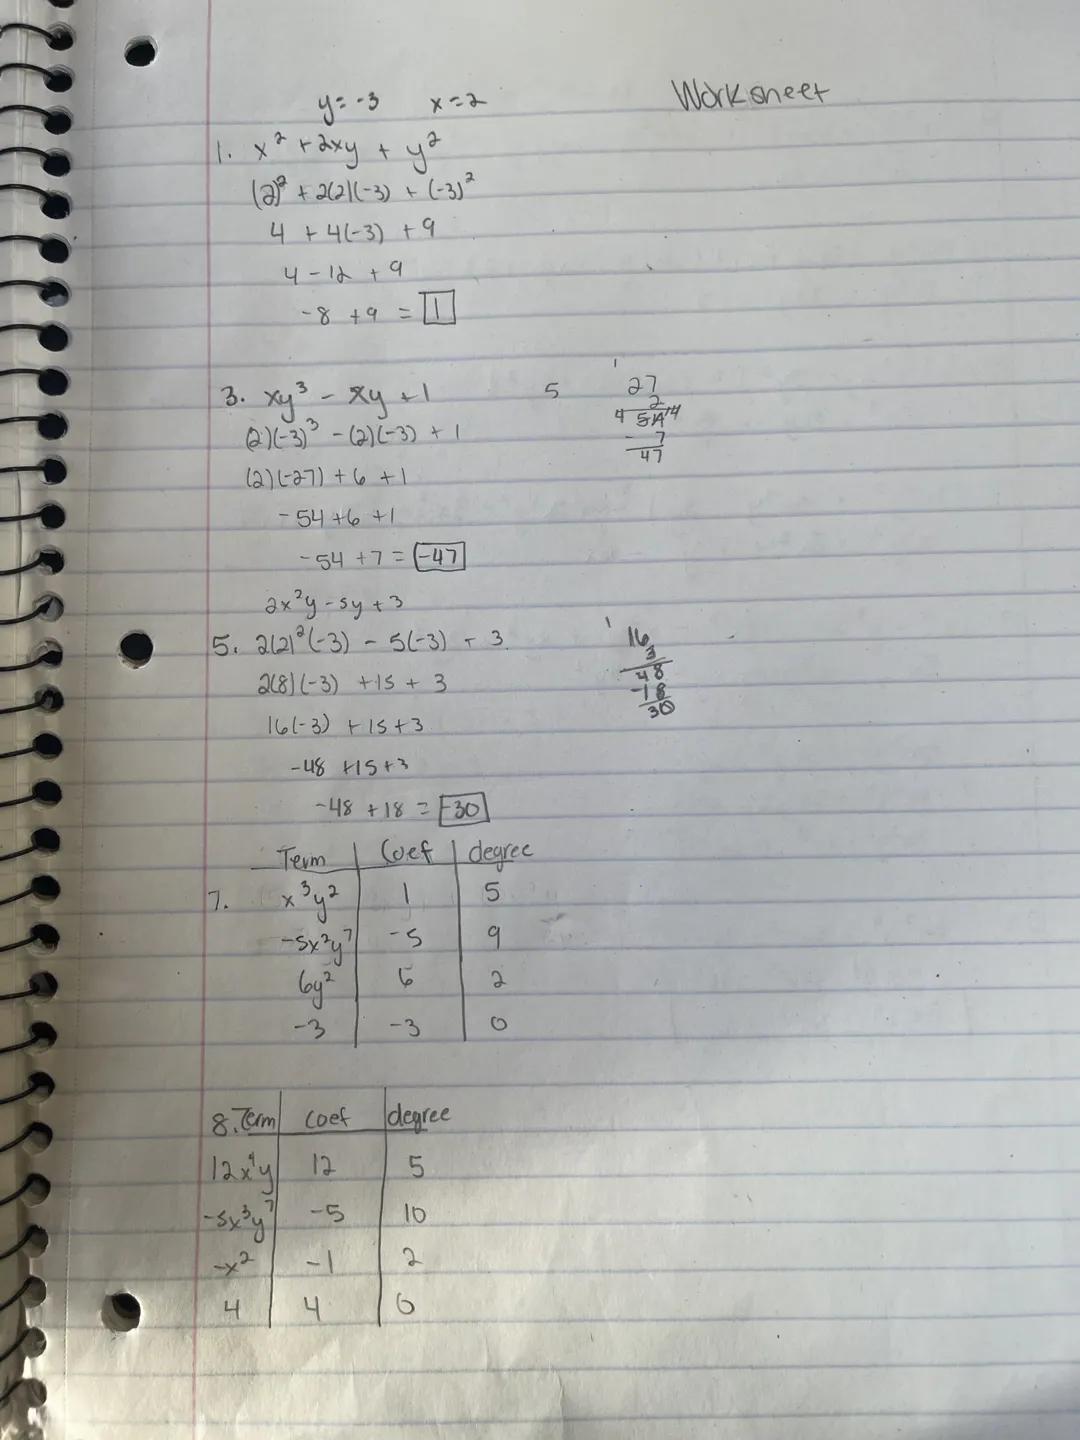 y=-3 x=2
Worksheet
1. x² + 2xy + y²
(2)² + 2(2)(-3) + (-3)²
4 + 4(-3) + 9
4 - 12 + 9
-8 + 9 = 1
3. xy³ - xy + 1
(2)(-3)³ - (2)(-3) + 1
(2)(-27) + 6 + 1
-54 + 6 + 1
-54 + 7 = -47
5
1
27
2
4 54 14
- 7
47
2x²y - 5y + 3
5. 2(2)²(-3) - 5(-3) + 3
2(8)(-3) + 15 + 3
16(-3) + 15 + 3
-48 + 15 + 3
-48 + 18 = -30
1
16
3
48
-18
30
Term Coef degree
7. x³y² 1 5
-5x²y⁷ -5 9
6y² 6 2
-3 -3 0
8. Term coef degree
12x⁴y 12 5
-5x³y⁷ -5 10
-x² -1 2
4 4 0